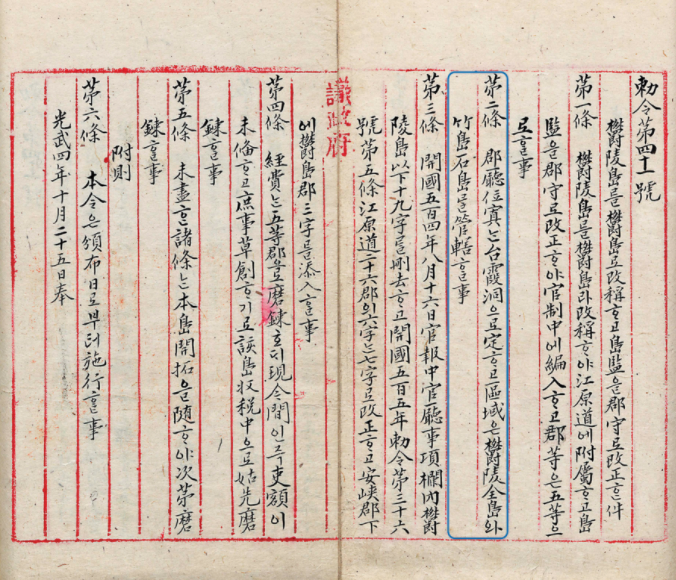 勅令第四十一號
欝陵島를 欝島로 改稱ᄒᆞ고 島監을 郡守로 改正ᄒᆞᆫ 件
第一條 欝陵島를 欝島라 改稱ᄒᆞ야 江原道에 附屬ᄒᆞ고 島
監을 郡守로 改正ᄒᆞ야 官制中에 編入ᄒᆞ고 郡等은 五等으
로 ᄒᆞᆯ 事
第二條 郡廳位寘는 台霞洞으로 定ᄒᆞ고 區域은 欝陵全島와
竹島石島를 管轄ᄒᆞᆯ 事
第三條 開國五百四年八月十六日官報中官廳事項欄內欝
陵島以下十九字를 刪去ᄒᆞ고 開國五百五年勅令第三十六
號第五條江原道二十六郡의 六字는 七字로 改正ᄒᆞ고 安峽郡下
에 欝島郡三字를 添入ᄒᆞᆯ 事
議政府
第四條 經費는 五等郡으로 磨鍊호ᄃᆡ 現今間인즉 吏額이
未備ᄒᆞ고 庶事草創ᄒᆞ기로 該島收稅中으로 姑先磨
鍊ᄒᆞᆯ 事
第五條 未盡ᄒᆞᆫ 諸條는 本島開拓을 隨ᄒᆞ야 次第磨
鍊ᄒᆞᆯ 事
附則
第六條 本令은 頒布日로부터 施行ᄒᆞᆯ 事
光武四年十月二十五日奉